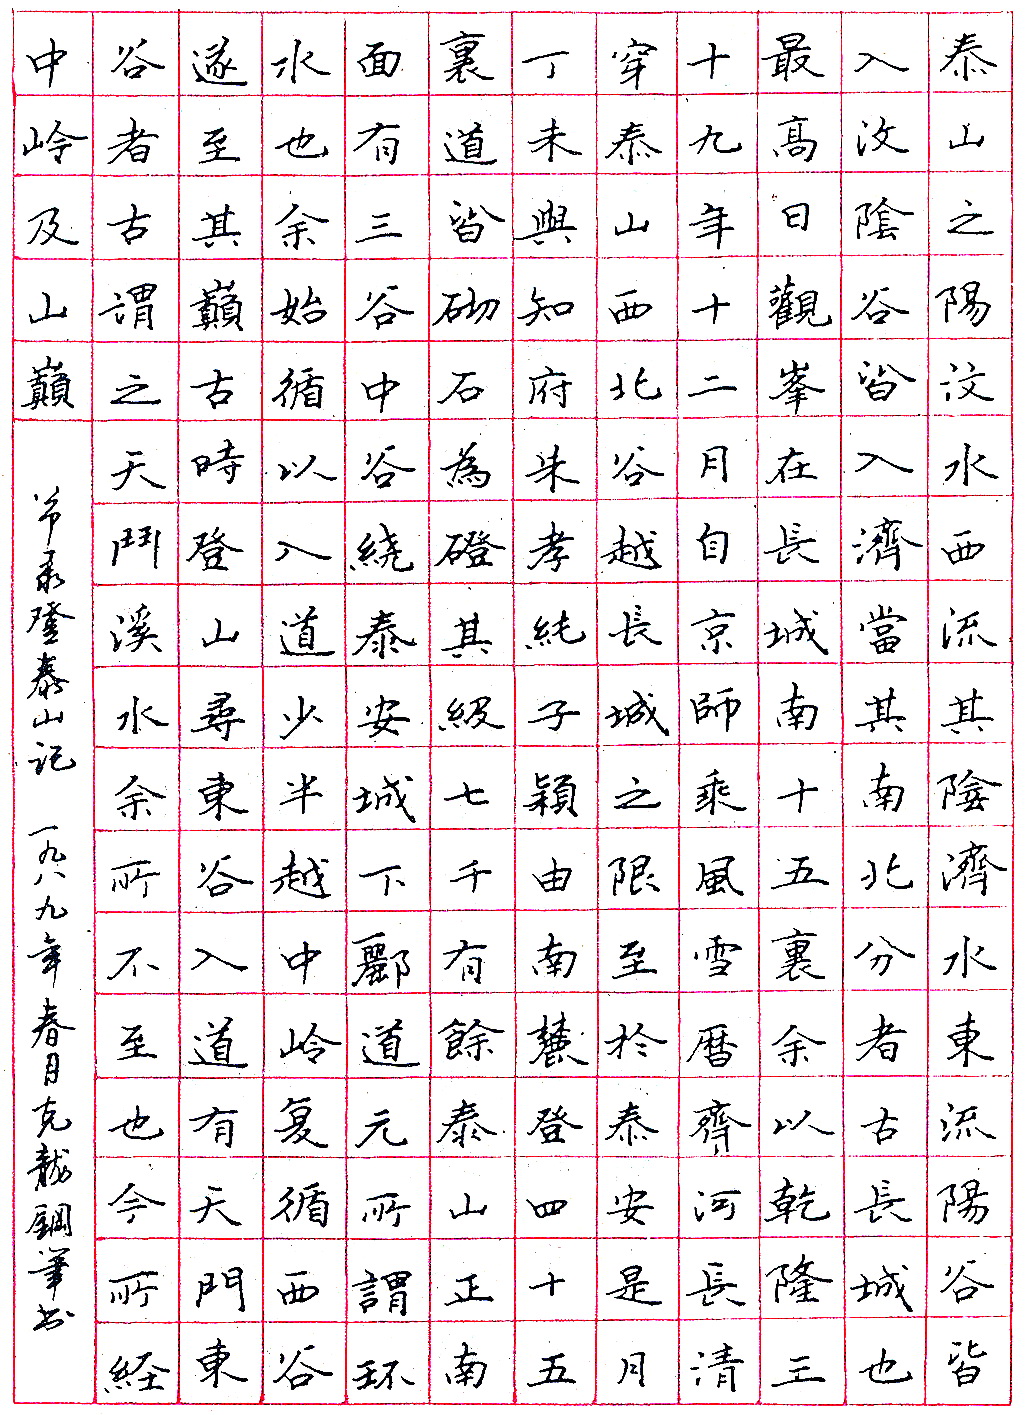 泰山之陽汶水西流其陰濟水東流陽谷皆
入汶陰谷皆入濟當其南北分者古長城也
最高日觀峯在長城南十五裏余以乾隆三
十九年十二月自京師乘風雪曆齊河長清
穿泰山西北谷越長城之限至於泰安是月
丁未與知府朱孝純子穎由南麓登四十五
裏道皆砌石為磴其級七千有餘泰山正南
面有三谷中谷繞泰安城下酈道元所謂环
水也余始循以入道少半越中岭复循西谷
遂至其巔古時登山尋東谷入道有天門東
谷者古謂之天鬥溪水余所不至也今所経
中岭及山巔
节录登泰山记 一九八九年春月克龍鋼筆书